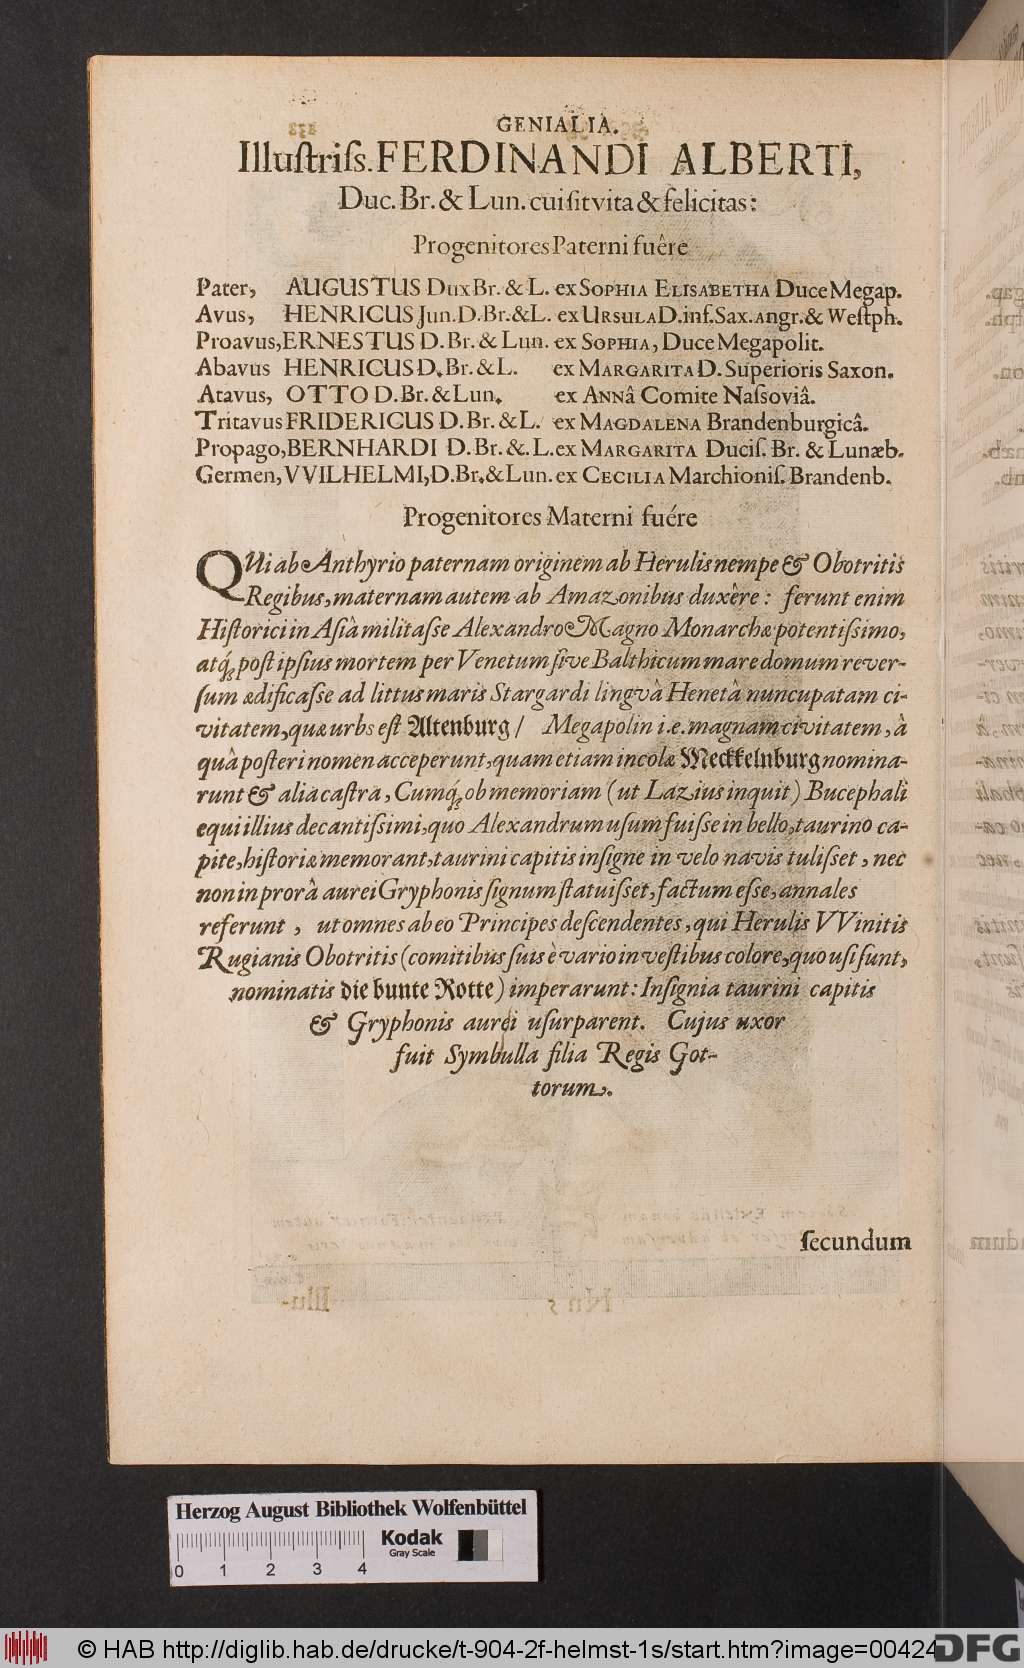 GENIALIA.
Illustriſs. FERDINANDI ALBERTI,
Duc. Br. & Lun. cui ſit vita & felicitas:
Progenitores Paterni fuêre
Pater, AUGUSTUS Dux Br. & L. ex SOPHIA ELISABETHA Duce Megap.
Avus, HENRICUS Jun. D. Br. & L. ex URSULA D. inf. Sax. angr. & Weſtph.
Proavus, ERNESTUS D. Br. & Lun. ex SOPHIA, Duce Megapolit.
Abavus HENRICUS D. Br. & L. ex MARGARITA D. Superioris Saxon.
Atavus, OTTO D. Br. & Lun. ex ANNâ Comite Naſsoviâ.
Tritavus FRIDERICUS D. Br. & L. ex MAGDALENA Brandenburgicâ.
Propago, BERNHARDI D. Br. &. L. ex MARGARITA Duciſ. Br. & Lunæb.
Germen, VVILHELMI, D. Br. & Lun. ex CECILIA Marchioniſ. Brandenb.
Progenitores Materni fuére
QUi ab Anthyrio paternam originem ab Herulis nempe & Obotritis
Regibus, maternam autem ab Amazonibus duxêre: ferunt enim
Hiſtorici in Aſiâ militaſse Alexandro Magno Monarchæ potentiſsimo,
atq́; poſt ipſius mortem per Venetum ſive Balthicum mare domum rever-
ſum ædificaſse ad littus maris Stargardi linguâ Henetâ nuncupatam ci-
vitatem, quæ urbs eſt Altenburg / Megapolin i. e. magnam civitatem, à
quâ poſteri nomen acceperunt, quam etiam incolæ Meckkelnburg nomina-
runt & alia caſtra, Cumq́; ob memoriam (ut Lazius inquit) Bucephali
equi illius decantiſsimi, quo Alexandrum uſum fuiſse in bello, taurino ca-
pite, hiſtoriæ memorant, taurini capitis inſigne in velo navis tuliſset, nec
non in prorâ aurei Gryphonis ſignum ſtatuiſset, factum eſse, annales
referunt, ut omnes ab eo Principes deſcendentes, qui Herulis VVinitis
Rugianis Obotritis (comitibus ſuis è vario in veſtibus colore, quo uſi ſunt,
nominatis die bunte Rotte) imperarunt: Inſignia taurini capitis
& Gryphonis aurei uſurparent. Cujus uxor
fuit Symbulla filia Regis Got-
torum.
ſecundum
Herzog August Bibliothek Wolfenbüttel
Kodak
Gray Scale
0 1 2 3 4
© HAB http://diglib.hab.de/drucke/t-904-2f-helmst-1s/start.htm?image=00424
DFG